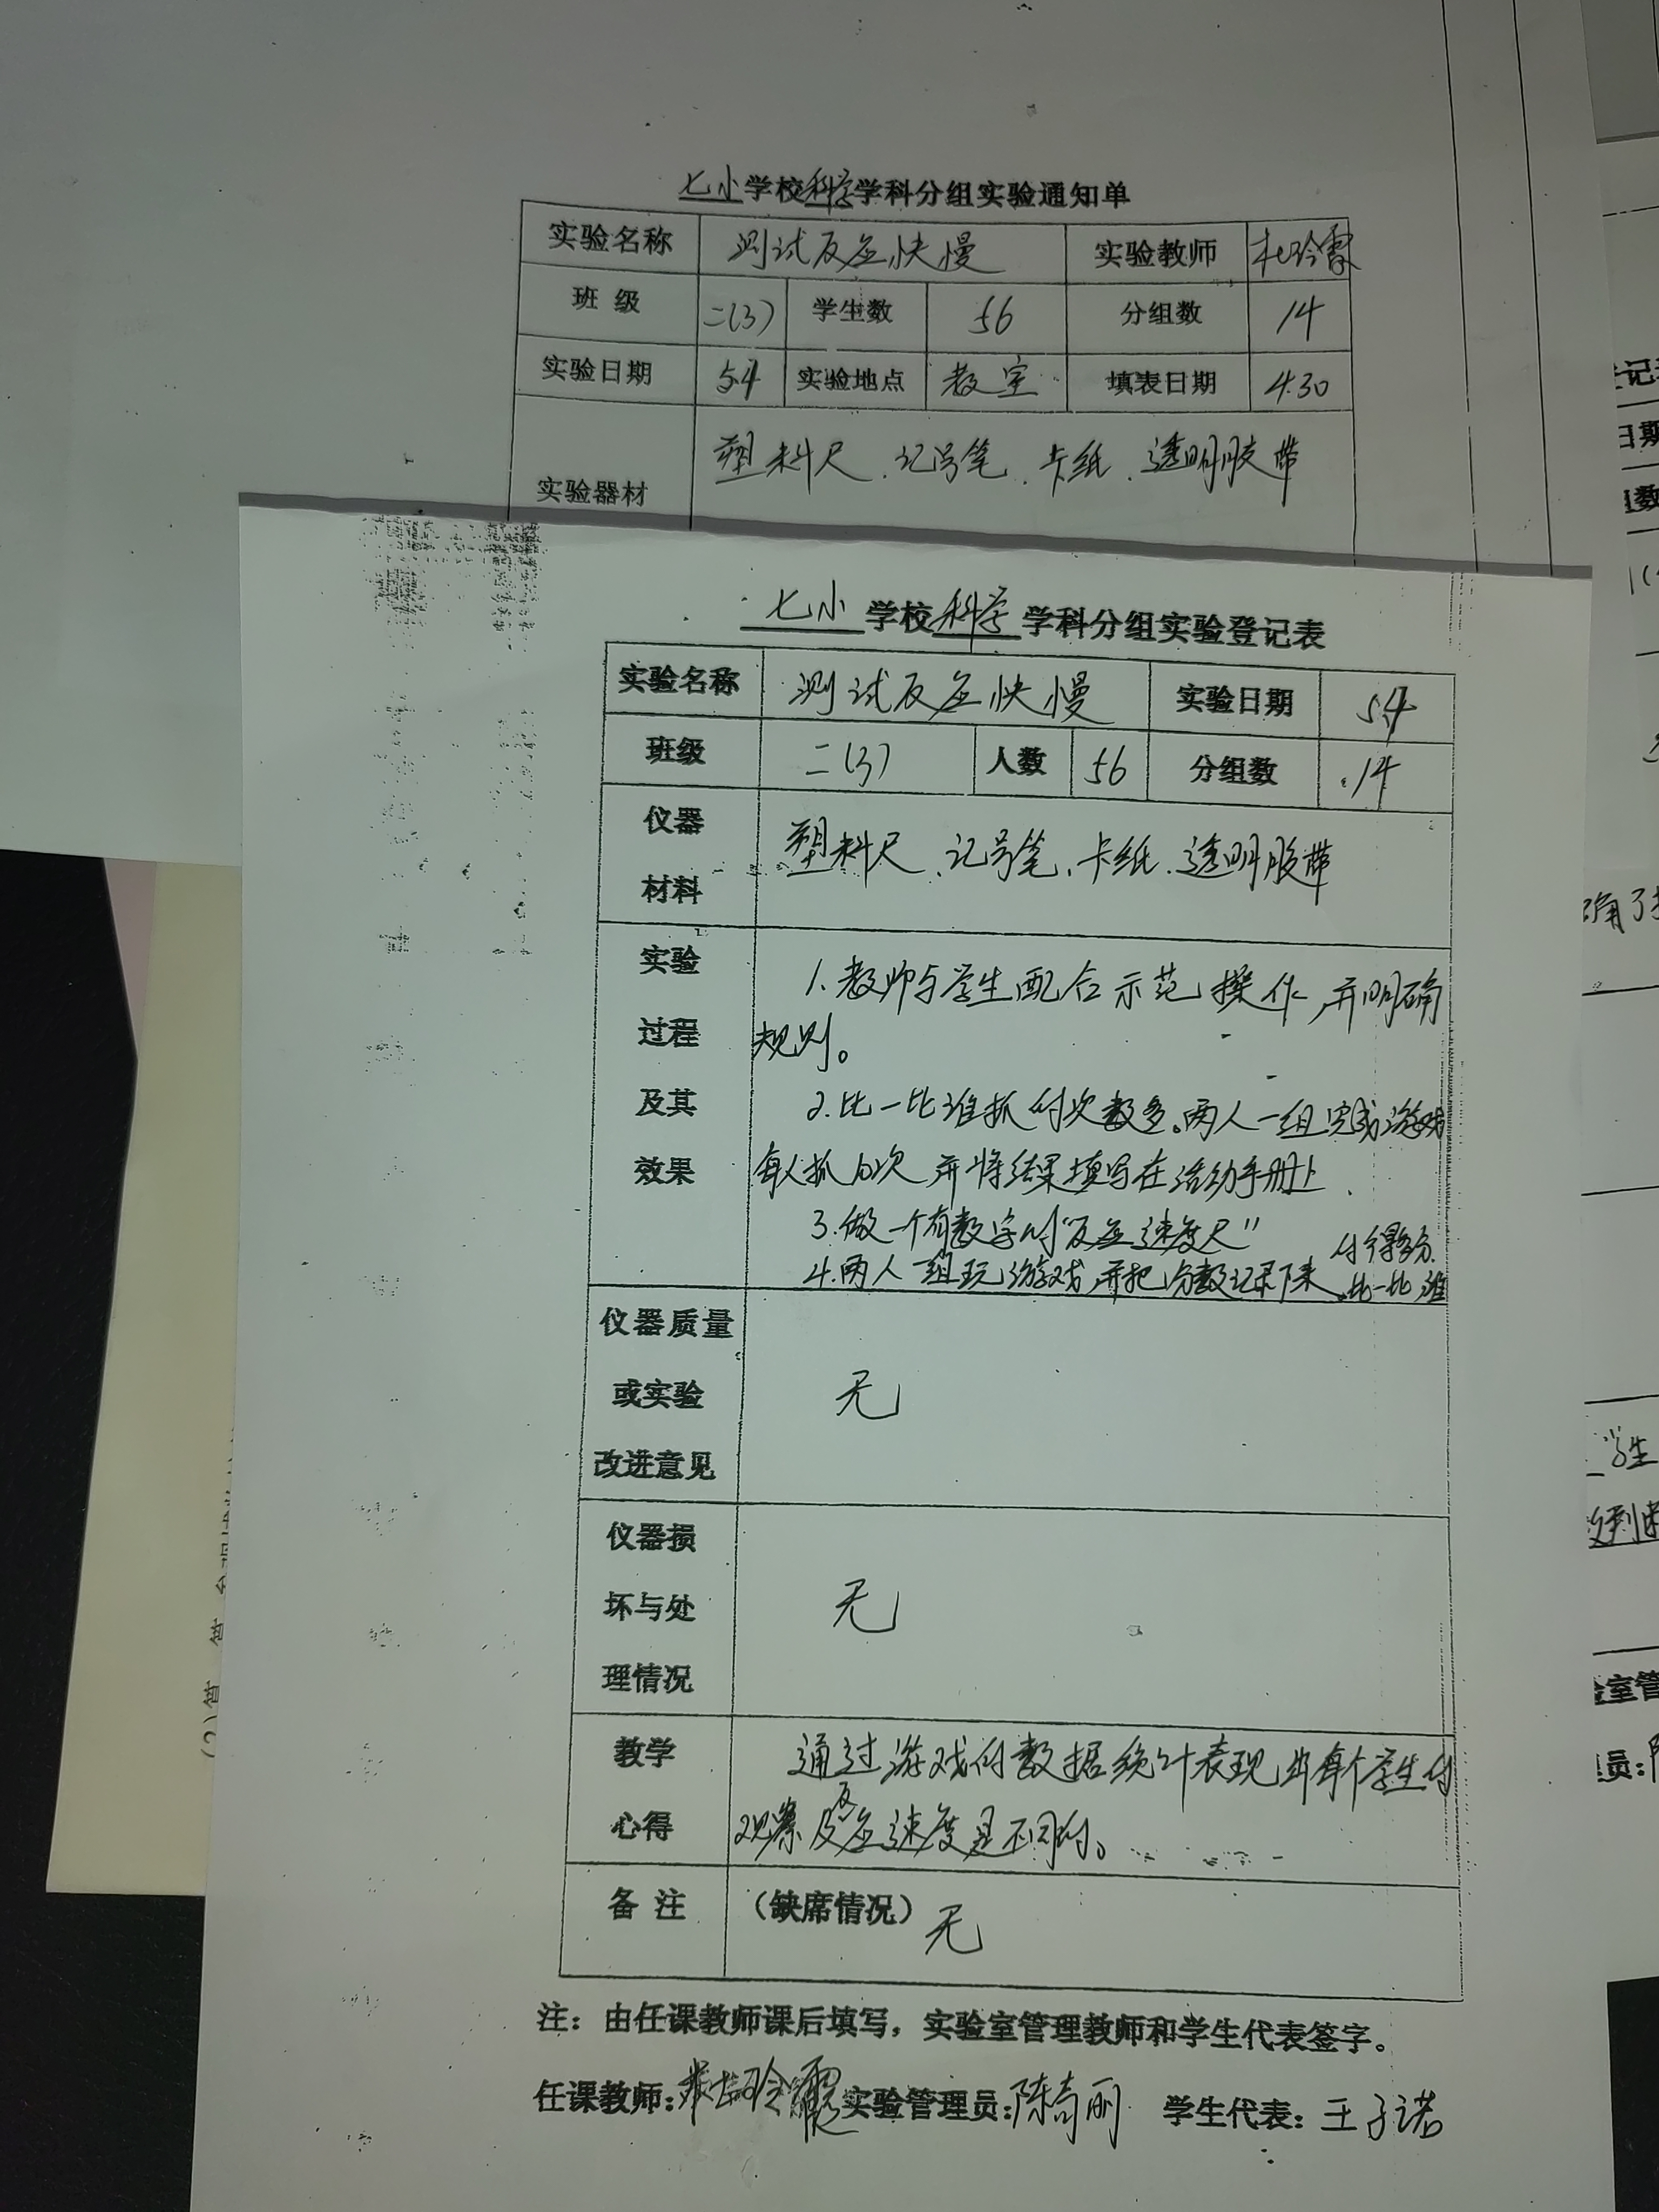 七小学校科学学科分组实验通知单
实验名称 测试反应快慢 实验教师
班 级 二(3) 学生数 56 分组数 14
实验日期 5.4 实验地点 教室 填表日期 4.30
实验器材 塑料尺、记号笔、卡纸、透明胶带
七小 学校 科学 学科分组实验登记表
实验名称 测试反应快慢 实验日期 5.4
班级 二(3) 人数 56 分组数 14
仪器
材料
塑料尺、记号笔、卡纸、透明胶带
实验
过程
及其
效果
1.教师与学生配合示范操作,并明确
规则。
2.比一比谁抓的次数多。两人一组完成游戏
每人抓10次 并将结果填写在活动手册上.
3.做一个有数字的“反应速度尺”
4.两人一组玩游戏,并把分数记录下来.比一比,谁
的得多分.
仪器质量
或实验
改进意见
无
仪器损
坏与处
理情况
无
教学
心得
通过游戏的数据统计表现出每个学生的
观察及反应速度是不同的。
备 注 (缺席情况) 无
注:由任课教师课后填写,实验室管理教师和学生代表签字。
任课教师: 实验管理员:陈奇丽 学生代表:王子诺
登记表
日期
组数
确了
学生
验室管
员: